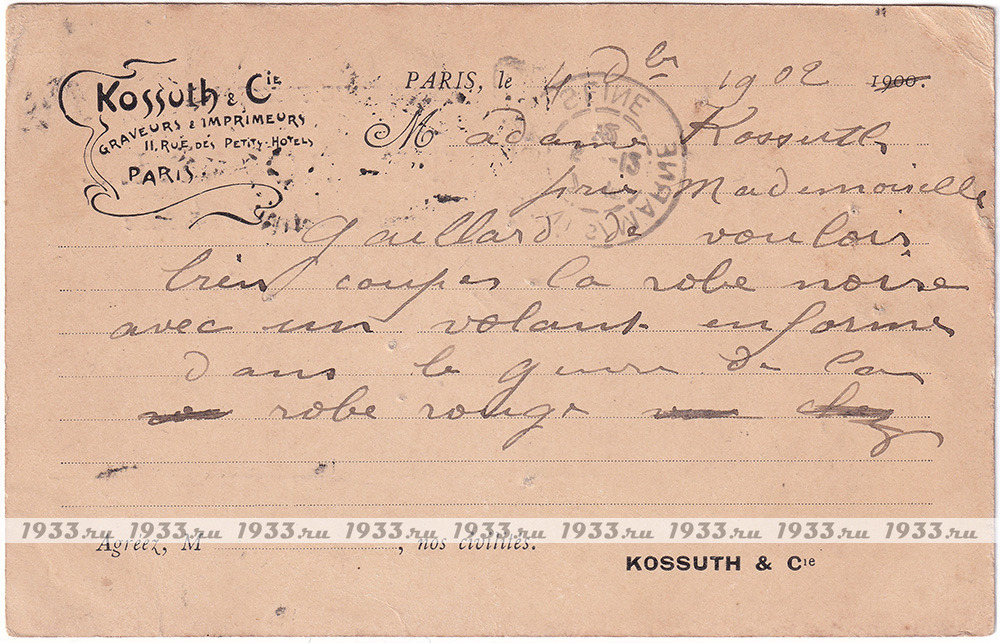 Kossuth & Cie
GRAVEURS & IMPRIMEURS
11, RUE DES PETITS-HOTELS
PARIS
PARIS, le 4 Dbre 1902 1900.
Madame Kossuth
prie Mademoiselle
Gaillard de vouloir
bien couper la robe noire
avec un volant en forme
dans le genre de la
robe rouge
SEINE
MARNE
1933.ru 1933.ru 1933.ru 1933.ru 1933.ru 1933.ru 1933.ru 1933.ru 1933.ru
Agréez, M , nos civilités.
KOSSUTH & Cie